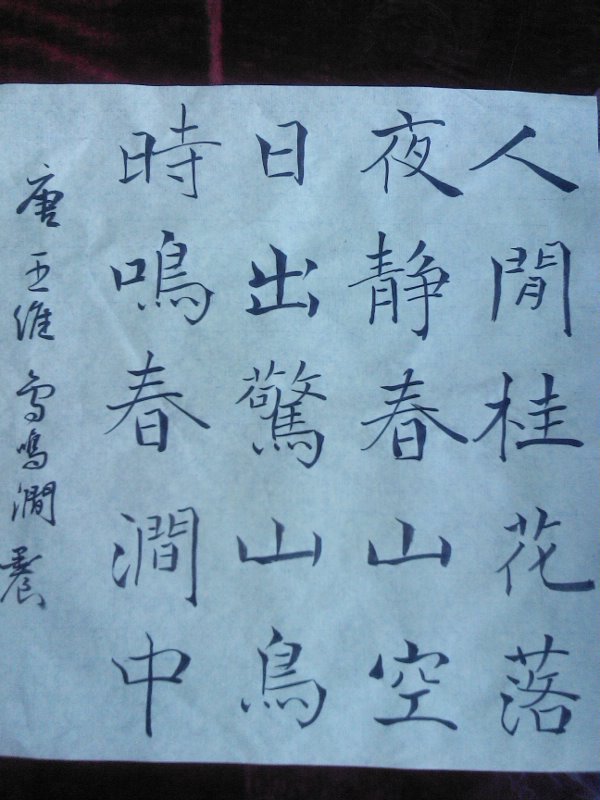 人閒桂花落
夜静春山空
日出驚山鳥
時鳴春澗中
唐 王維 鳥鳴澗